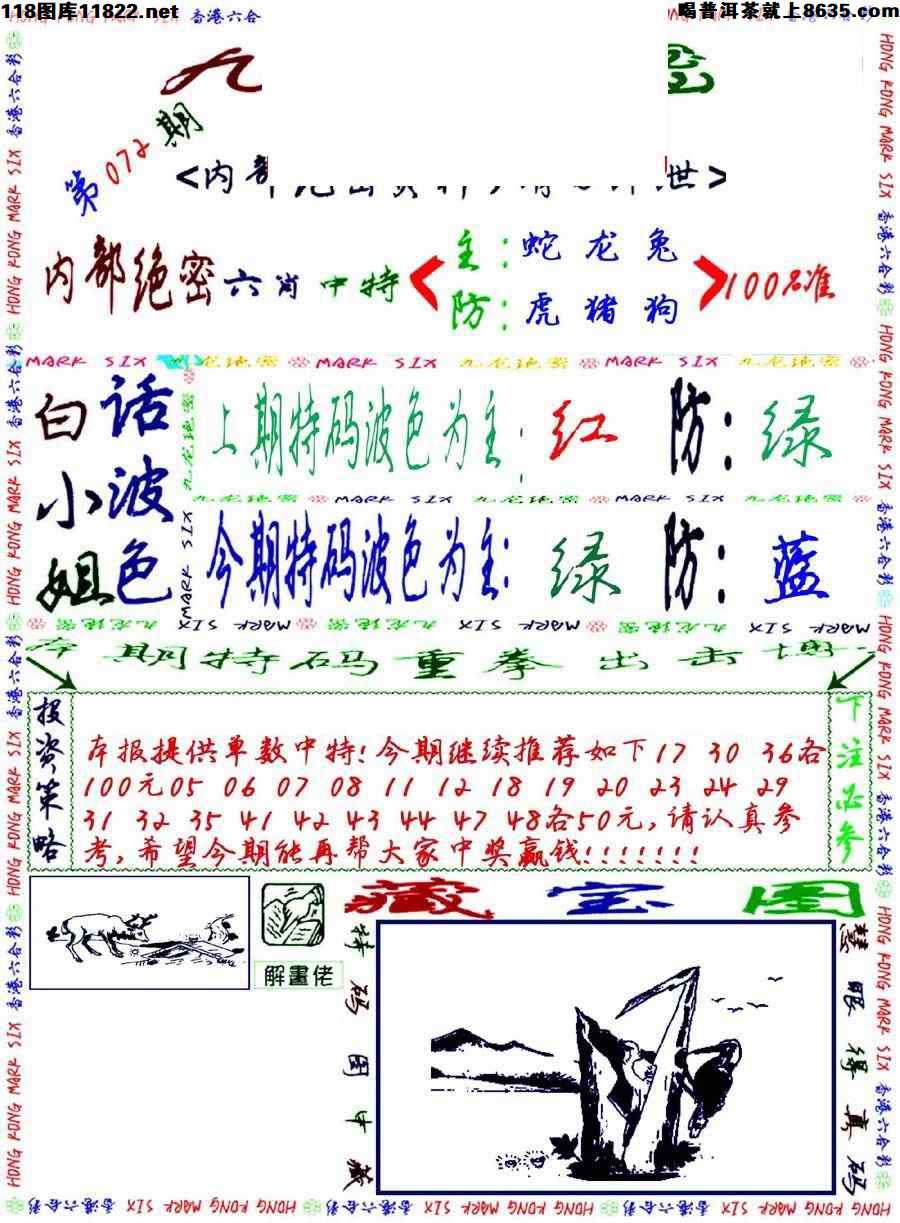 118图库11822.net
喝普洱茶就上8635.com
香港六合
第072期
<内部
世>
内部绝密六肖中特
主:蛇龙兔
防:虎猪狗
100%准
MARK SIX 九龙绝密 MARK SIX 九龙绝密 MARK SIX 九龙绝密
白小姐
话波色
上期特码波色为主:红 防:绿
九龙绝密 MARK SIX 九龙绝密 MARK SIX
今期特码波色为主:绿 防:蓝
九龙绝密 MARK SIX 九龙绝密 MARK SIX 九龙绝密 MARK SIX
期特码重拳出击
投资策略
本报提供单数中特!今期继续推荐如下17 30 36各
100元05 06 07 08 11 12 18 19 20 23 24 29
31 32 35 41 42 43 44 47 48各50元,请认真参
考,希望今期能再帮大家中奖赢钱!!!!!!!
下注必参
解畫佬
藏宝图
特码图中藏
慧眼得真码
HONG KONG MARK SIX 香港六合彩